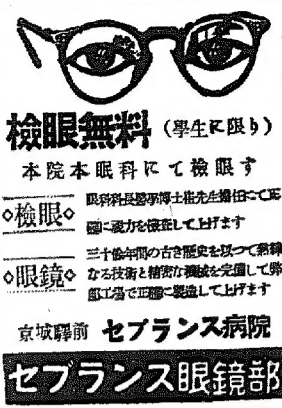 檢眼無料（學生ニ限リ）
本院本眼科にて檢眼す
◇檢眼◇
眼科科長醫學博士崔先生擔任にて正
確に視力を檢査して上げます
◇眼鏡◇
三十餘年間の古き歷史を以つて熟練
なる技術と精密な機械を完備して弊
部工場で正確に製造して上げます
京城驛前 セブランス病院
セブランス眼鏡部